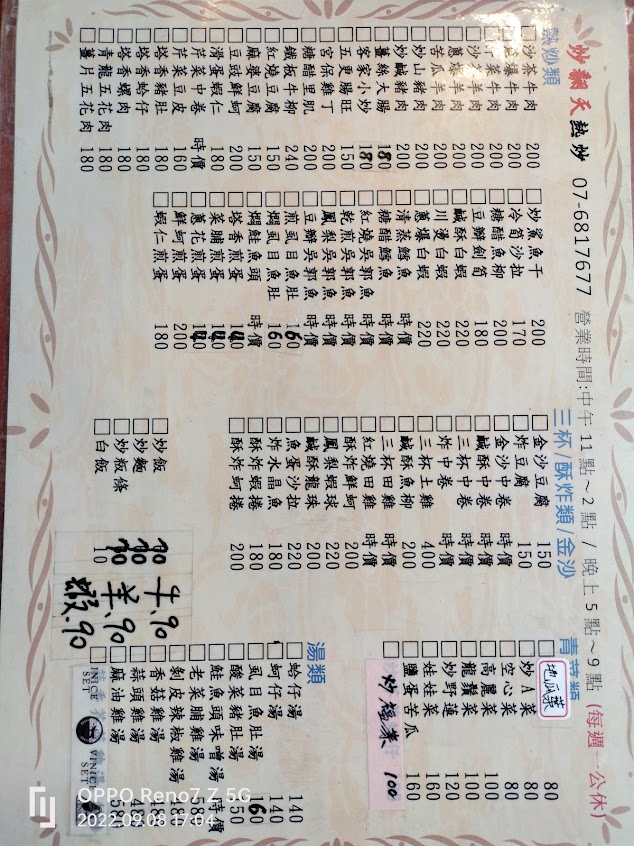 炒翻天熱炒 07-6817677 營業時間:中午11點~2點 / 晚上5點~9點 (每週一公休)
熱炒類
沙茶牛肉 200
蔥爆牛肉
菜牛肉 200
沙茶羊肉 200
蔥爆羊肉 200
苦瓜羊肉 200
炒山豬肉 200
炒鹹豬肉 200
薑絲大腸 180
客家小炒 180
五更腸旺 150
宮保雞丁 200
糖醋里肌 200
鐵板牛柳 240
紅燒豆腐 150
麻婆豆腐 150
豆豉鮮蚵 200
滑蛋蝦仁 180
芹菜中卷 時價
芹菜豆皮 160
塔香豬肚 180
塔香蛤仔 180
塔香螺肉 180
青龍五花肉 180
薑片五花肉 180
炒鯊魚干 200
冷筍沙拉 170
糖醋魚柳 200
豆瓣劍筍 180
鹹酥白蝦 220
川燙白蝦 220
蔥爆白蝦 220
清蒸鱈魚 時價
糖醋鱈魚 時價
紅燒吳郭魚 時價
乾煎吳郭魚 時價
鳳梨吳郭魚 時價
豆瓣吳郭魚 時價
煎虱目魚肚 160
燜虱目魚肚 160
燜鮭魚頭 時價
塔香煎蛋 140
菜脯煎蛋 140
蔥花煎蛋 140
鮮蚵煎蛋 200
蝦仁煎蛋 180
三杯/酥炸類/金沙
金沙豆腐 150
炸豆腐 150
金沙中卷 時價
鹹酥中卷 時價
三杯中卷 時價
炸中卷 時價
三杯土雞 400
鹹酥魚柳 200
三杯田雞 時價
紅燒田雞 時價
酥炸鮮蚵 200
鳳梨蝦球 220
鹹酥龍珠 200
魚蛋沙拉 220
炸水晶魚 180
酥炸魚捲 180
酥炸蚵捲 200
炒飯 70
炒麵 70
炒粄條 70
白飯 10
牛.90
羊.90
蝦.90
青菜類
地瓜葉 80
炒A菜 80
空心菜 80
高麗菜 100
龍鬚菜 100
炒野蓮 120
娃娃菜 160
鹽蛋苦瓜 160
炒福菜 100
湯類
蛤仔湯 140
蚵仔湯 140
虱目魚肚湯 160
酸菜豬肚湯
鮭魚頭味噌湯 時價
老菜脯雞湯
剝皮辣椒雞湯
香菇雞湯
蒜頭雞湯
麻油雞湯
OPPO Reno7 Z 5G
2022.09.08 17:04